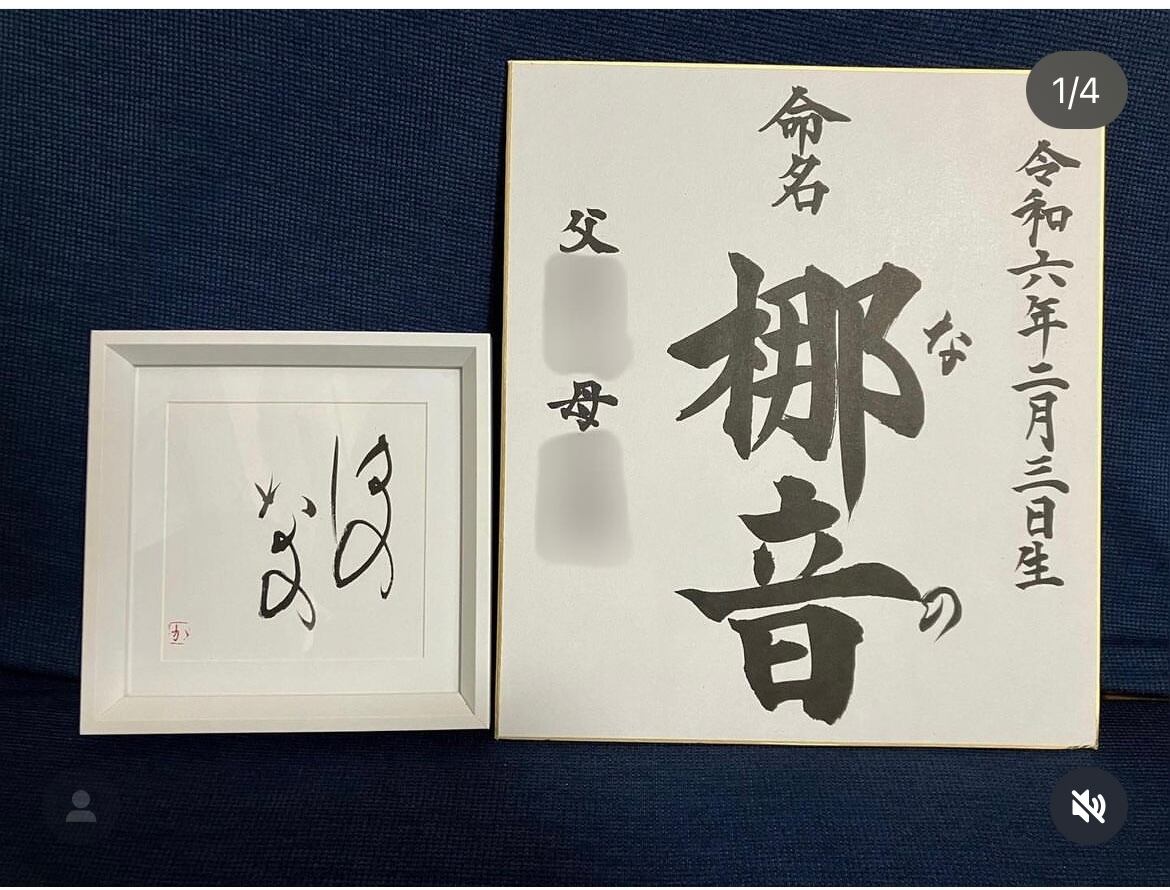 1/4
令和六年二月三日生
命名
梛音
な
の
父
母
なの
か